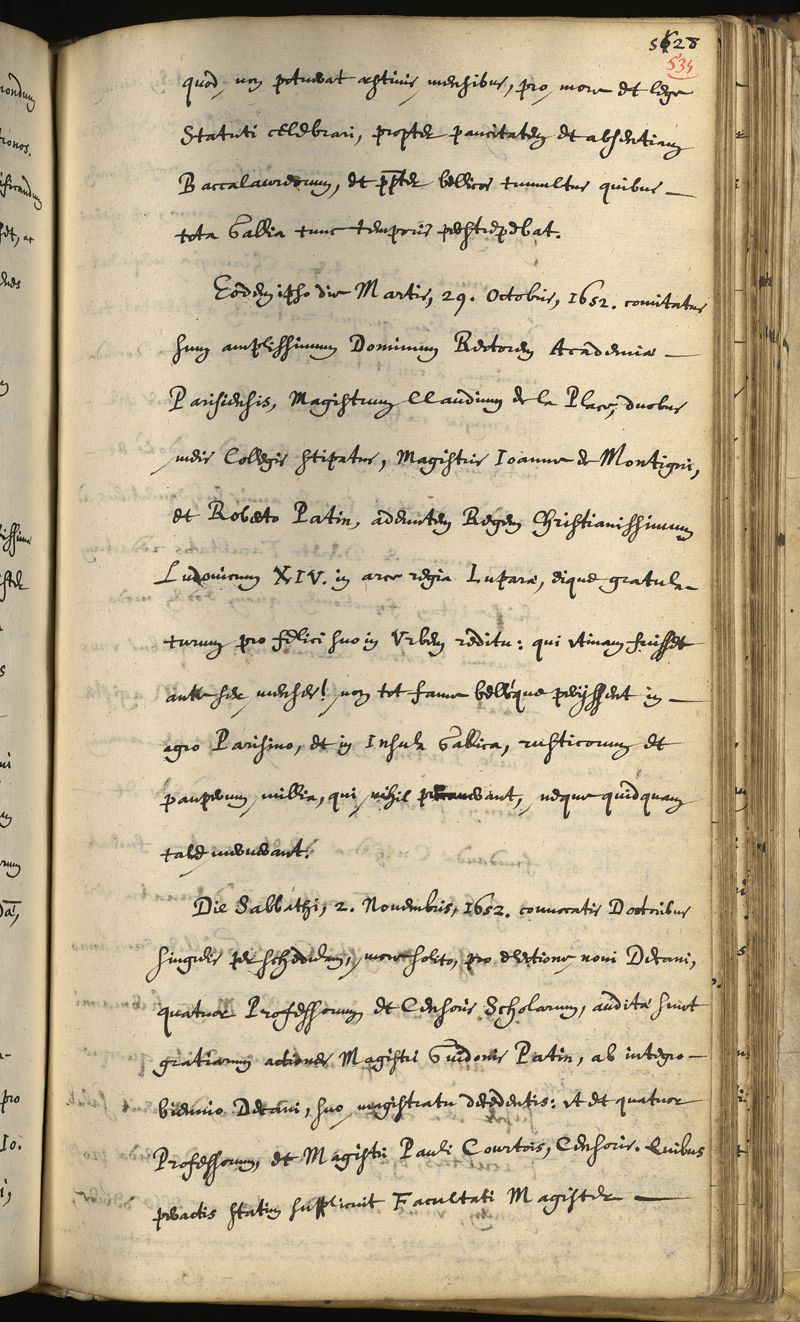 5628
534
quod non potuerat æstivis mensibus, pro more et lege
Statuti celebrari, propter paucitatem et absentiam
Baccalaureorum, et ppter bellicos tumultus quibus
tota Gallia tunc temporis perstrepebat.
Eodem ipso die Martis, 29. Octobris, 1652. comitatus
sum amplissimum Dominum Rectorem Academiæ
Parisiensis, Magistrum Claudium de la Place, duobus
meis Collegis stipatus, Magistris Ioanne de Montigni,
et Roberto Patin, adeuntem Regem Christianissimum
Ludovicum XIV. in arce regia Luparæ, eique gratula-
turum pro felici suo in Urbem reditu: qui utinam fuisset
ante sex menses! non tot fame bellóque periissent in
agro Parisino, et in Insula Gallica, rusticorum et
pauperum millia, qui nihil peccaverant, neque quidquam
tale meruerant.
Die Sabbathi, 2. Novembris, 1652. convocatis Doctoribus
singulis per schedulam, more solito, pro electione novi Decani,
quatuor Professorum et Censoris Scholarum, auditæ sunt
gratiarum actiones Magistri Guidonis Patin, ab integro
biennio Decani, suo magistratu decedentis: ut et quatuor
Professorum, et Magistri Pauli Courtois, Censoris. Quibus
peractis statim supplicuit Facultati Magister